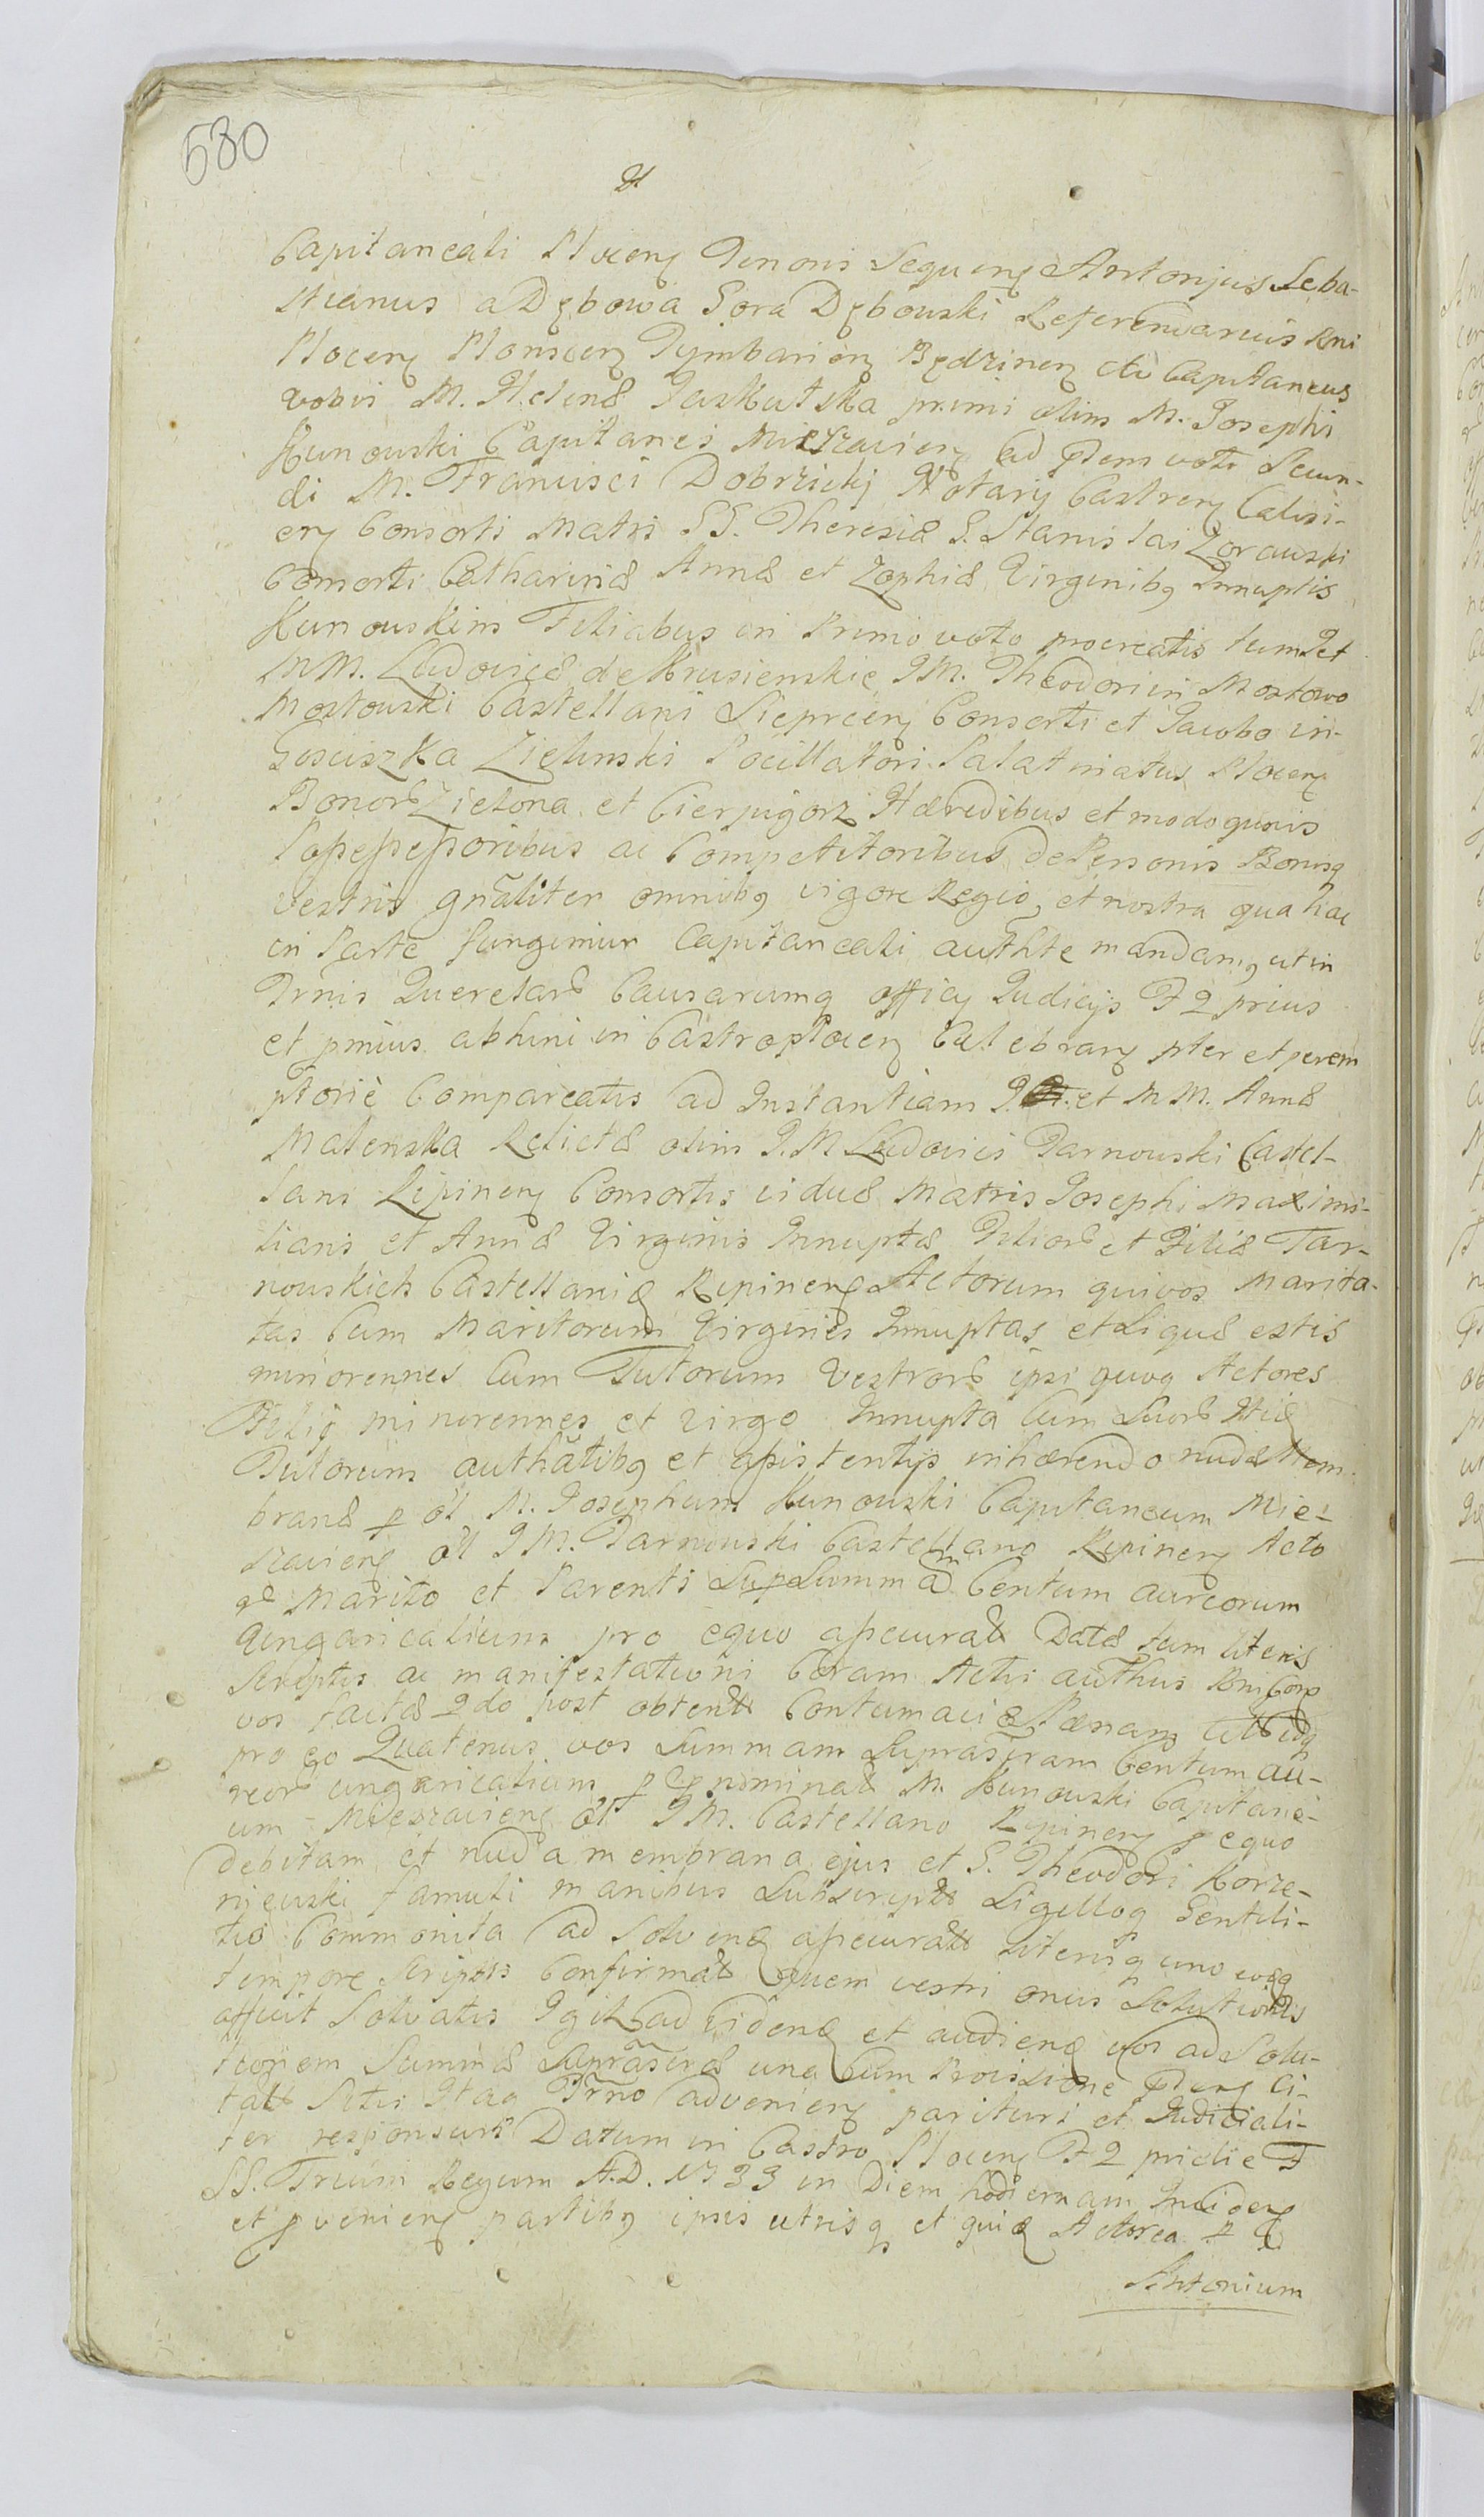 580
Capitaneali Plocen Tenoris Sequen Antonius Seba-
stianus a Dębowa Gora Dębowski Referendarius Rni
Plocen Plonscen Tymbarien Będzinen etc Capitaneus
vobis M. Helenæ Jaskulska primi olim M. Josephi
Kunowski Capitanei Mieszcovien ad p̃tens voti Secun-
di M. Francisci Dobrzickj Notarij Castren Calisi-
en Consorti Matri GG. Theresiæ G. Stanislai Zorawski
Consorti Catharinæ Annæ et Zophiæ Virginibꝫ Innuptis
Kunowskim Filiabus in Primo voto procreatis tum
MM. Ludovicæ de Krusienskie JM. Theodori in Mostowo
Mostowski Castellani Sieprcen Consorti et Jacobo in
Gosciszka Zielinski Pocillatori Palatinatus Plocen
Bonorũ Zielona et Cierpigorz Hæredibus et modo quovis
Possessoribus ac Competitoribus de Personis Bonisq
vestris gñaliter omnibꝫ vigore Regio et nostra qua hac
in Parte fungimur Capitaneali authte mandamꝫ ut in
Trnis Querelarũ Causarumq officij Judicijs F 2 prius
et pmius abhinc in Castro Plocen Celebran pter et perem
ptoriè Compareatis ad Instantiam J. et MM. Annæ
Malenska Relictæ olim J.M Ludovici Tarnowski Castel-
lani Ripinen Consortis viduæ Matris Josephi Maximi-
liani et Annæ Virginis Innuptæ Filiorũ et Filiæ Tar-
nowskich Castellaniæ Ripinen Actorum qui vos Marita-
tas Cum Maritorum Virgines Innuptas et Siquæ estis
minorennes Cum Tutorum Vestrorũ ipsi quoq Actores
Filij minorennes et Virgo Innupta Cum Suorũ Itid
Tutorum authãtibꝫ et assistentijs inhærendo nudæ Mem
branæ p ol M. Josephum Kunowski Capitaneum Mie-
szcovien ol JM. Tarnowski Castellano Ripinen Acto
rũ Marito et Parenti Sup Summã Centum aureorum
Vngaricalium pro equo assecuratæ Datæ tum literis
scriptis ac manifestationi Coram Actis authus Rni Con
vos factæ 2do post obtentæ Contumaciæ Pænam
pro eo Quatenus vos Summam Suprascram Centum au-
reorũ ungaricalium p nominat M. Kunowski Capitane-
um Mieszcovien ol JM. Castellano Ripinen p equo
debitam et nuda membrana ejus et G. Theodori Korze-
niewski famuli manibus Subscripta Sigilloq Gentili-
tio Communita ad Solven assecuratæ literisq uno eodq
tempore scriptis Confirmatæ quem vestri onus Solutionis
afficit Solvatis Igit ad videnđ et audienđ vos ad Solu-
tionem Summæ Suprascræ una Cum Provisione pten Ci-
tati Sitis Itaq Trno advenien parituri et Judiciali-
ter responsuri Datum in Castro Plocen F 2 pridie F
SS. Trium Regum A.D. 1733 in Diem hodiernam Inciden
et pvenien partibꝫ ipsis utrisq et quidē Actorea p G
Antonium